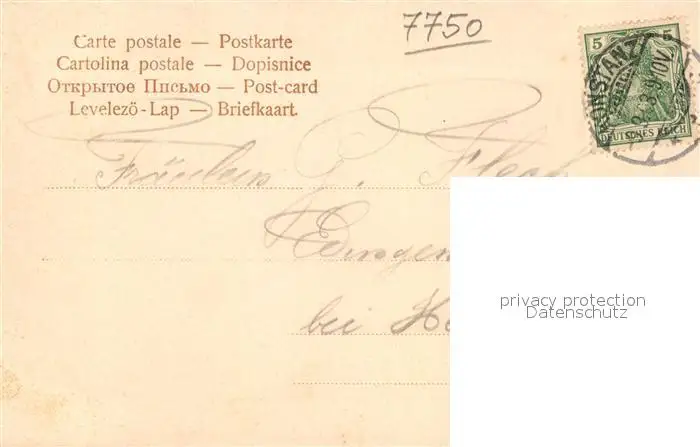 7750
Carte postale — Postkarte
Cartolina postale — Dopisnice
Открытое Письмо — Post-card
Levelezö-Lap — Briefkaart.
5 5
KONSTANZ
DEUTSCHES REICH
Fräulein
bei
privacy protection
Datenschutz